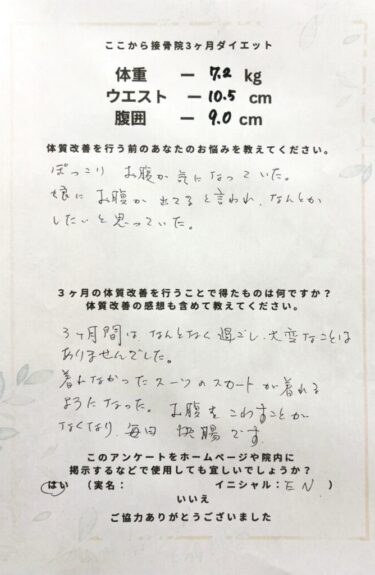 ここから接骨院3ヶ月ダイエット
体重 ー 7.2 kg
ウエスト ー 10.5 cm
腹囲 ー 9.0 cm
体質改善を行う前のあなたのお悩みを教えてください。
ぽっこり お腹が気になっていた。
娘に お腹が出てると言われ、なんとか
したいと思っていた。
3ヶ月の体質改善を行うことで得たものは何ですか?
体質改善の感想も含めて教えてください。
3ヶ月間は なんとなく過ごし、大変なことは
ありませんでした。
着れなかったスーツのスカートが着れる
ようになった。お腹をこわすことが
なくなり、毎日 快腸です。
このアンケートをホームページや院内に
掲示するなどで使用しても宜しいでしょうか?
はい (実名: イニシャル:E N. )
いいえ
ご協力ありがとうございました